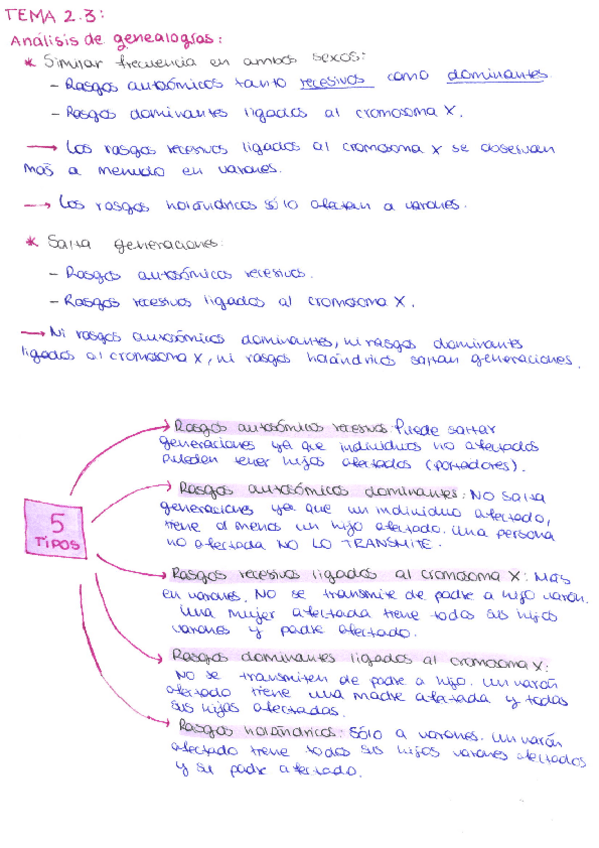 TEMA 2.3:
Análisis de genealogías:
* Similar frecuencia en ambos sexos:
- Rasgos autosómicos tanto recesivos como dominantes
- Rasgos dominantes ligados al cromosoma X.
→ Los rasgos recesivos ligados al cromosoma X se observan
más a menudo en varones.
→ Los rasgos holándricos sólo afectan a varones.
* Salta generaciones:
- Rasgos autosómicos recesivos.
- Rasgos recesivos ligados al cromosoma X.
→ Ni rasgos autosómicos dominantes, ni rasgos dominantes
ligados al cromosoma X, ni rasgos holándricos saltan generaciones.
5
TIPOS
Rasgos autosómicos recesivos: Puede saltar
generaciones ya que individuos no afectados
pueden tener hijos afectados (portadores).
Rasgos autosómicos dominantes: NO salta
generaciones ya que un individuo afectado,
tiene al menos un hijo afectado. Una persona
no afectada NO LO TRANSMITE.
Rasgos recesivos ligados al cromosoma X: Más
en varones. NO se transmite de padre a hijo varón.
Una mujer afectada tiene todos sus hijos
varones y padre afectado.
Rasgos dominantes ligados al cromosoma X:
NO se transmiten de padre a hijo. Un varón
afectado tiene una madre afectada y todas
sus hijas afectadas.
Rasgos holándricos: SÓLO a varones. Un varón
afectado tiene todos sus hijos varones afectados
y su padre afectado.